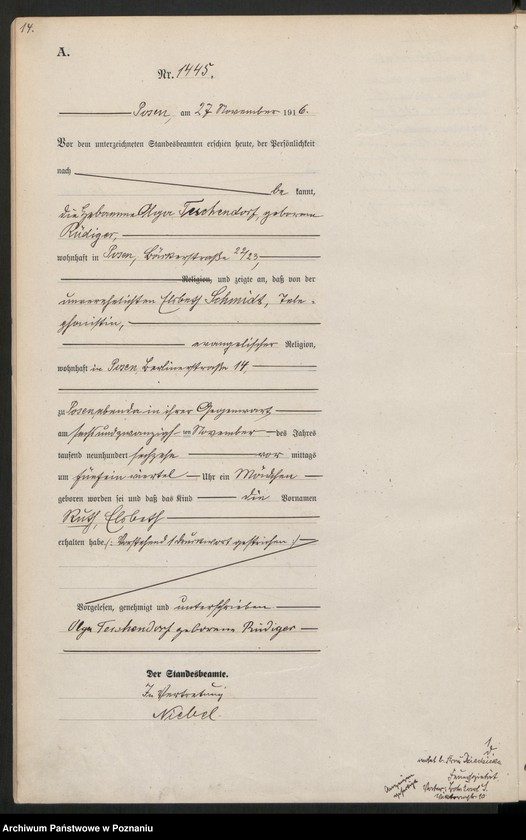 14.
A.
Nr. 1445.
Posen, am 27 November 1916.
Vor dem unterzeichneten Standesbeamten erschien heute, der Persönlichkeit
nach
be kannt,
die Hebamme Olga Teschendorf, geborene
Rüdiger,
wohnhaft in Posen, Bäckerstraße 22/23,
Religion, und zeigte an, daß von der
unverehelichten Elsbeth Schmidt, Tele-
phonistin,
evangelischer Religion,
wohnhaft in Posen Berlinerstraße 14.
zu Posen ebenda in ihrer Gegenwart
am sechsundzwanzigsten November des Jahres
tausend neunhundert sechzehn vor mittags
um fünf ein viertel Uhr ein Mädchen
geboren worden sei und daß das Kind die Vornamen
Ruth, Elsbeth
erhalten habe. (: Vorstehend 1 Druckwort gestrichen :)
Vorgelesen, genehmigt und unterschrieben
Olga Teschendorf geborene Rüdiger
Der Standesbeamte.
In Vertretung
Niebel.
Archiwum Państwowe w Poznaniu